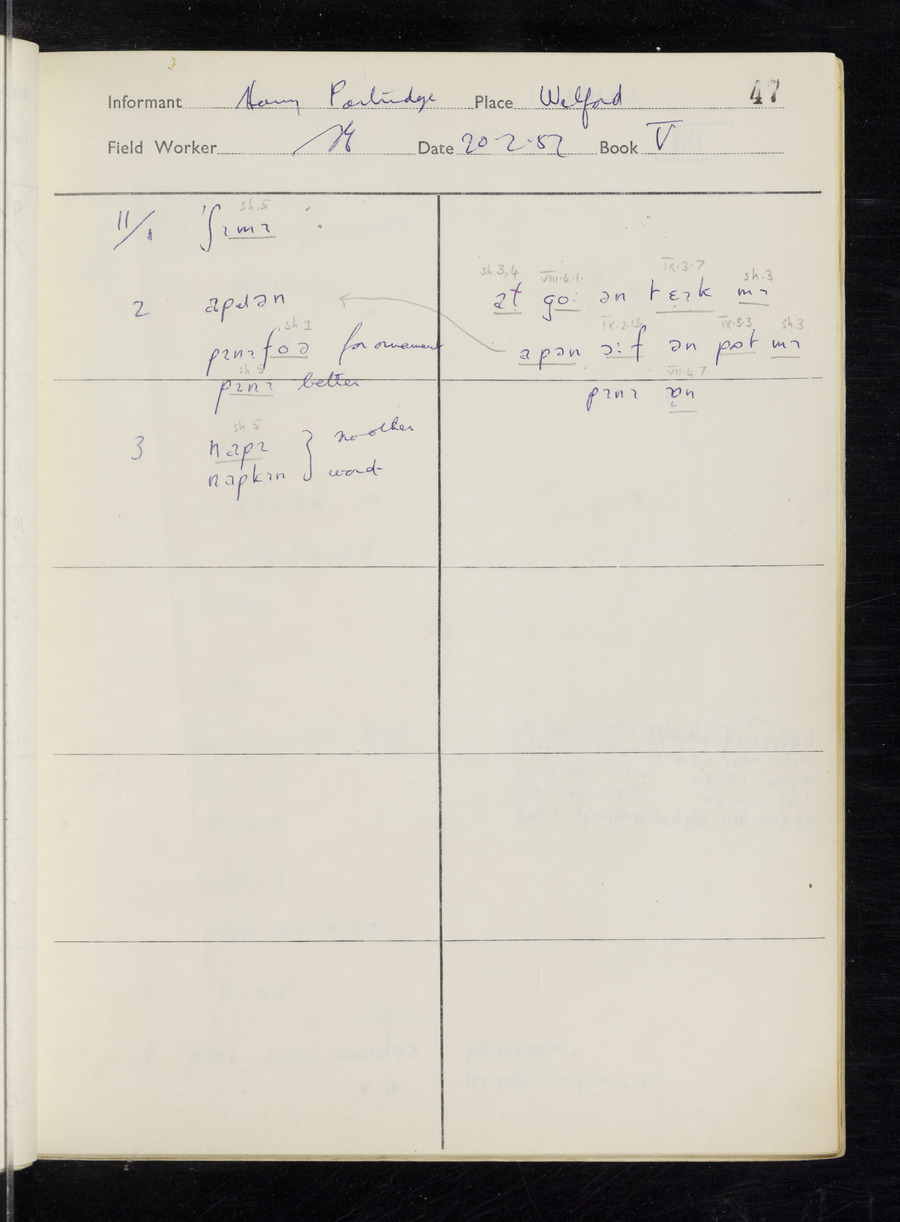 Informant Harry Partridge Place Welford 47
Field Worker Date 20·2·57 Book V
11/1 ʃɪmɪ sh.5
sh 3,4 VIII.6.1. IX.3.7 sh.3
at goː ən tɛɪk mɪ
2
sh.1 for ornament
IX.2.13 IX.3.3 sh.3
apən ɔːf ən pət mɪ
sh.5
pɪnɪ better
VII.4.7
pɪnɪ ɒn
3 sh.5
napɪ } no other
napkɪn } word